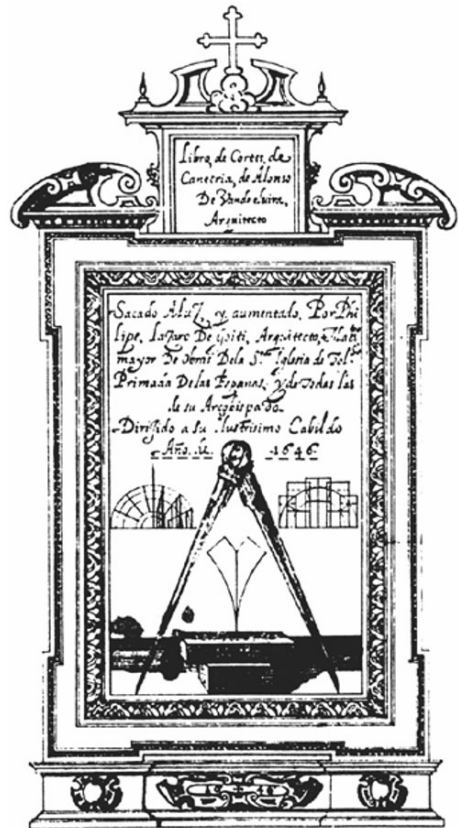 Libro, de Cortes, de
Canteria, de Alonso
De Vandeluira,
Arquitecto
Sacado Aluz, y aumentado, Por Phi
lipe, Lazaro De Goiti, Arquitecto, Y Mae.
mayor De obras Dela Sta. Iglesia de Tole.
Primada De las Espanas, y de todas las
de su Arçobispado
Dirigido a su Ilustrisimo Cabildo
Año, de 1646